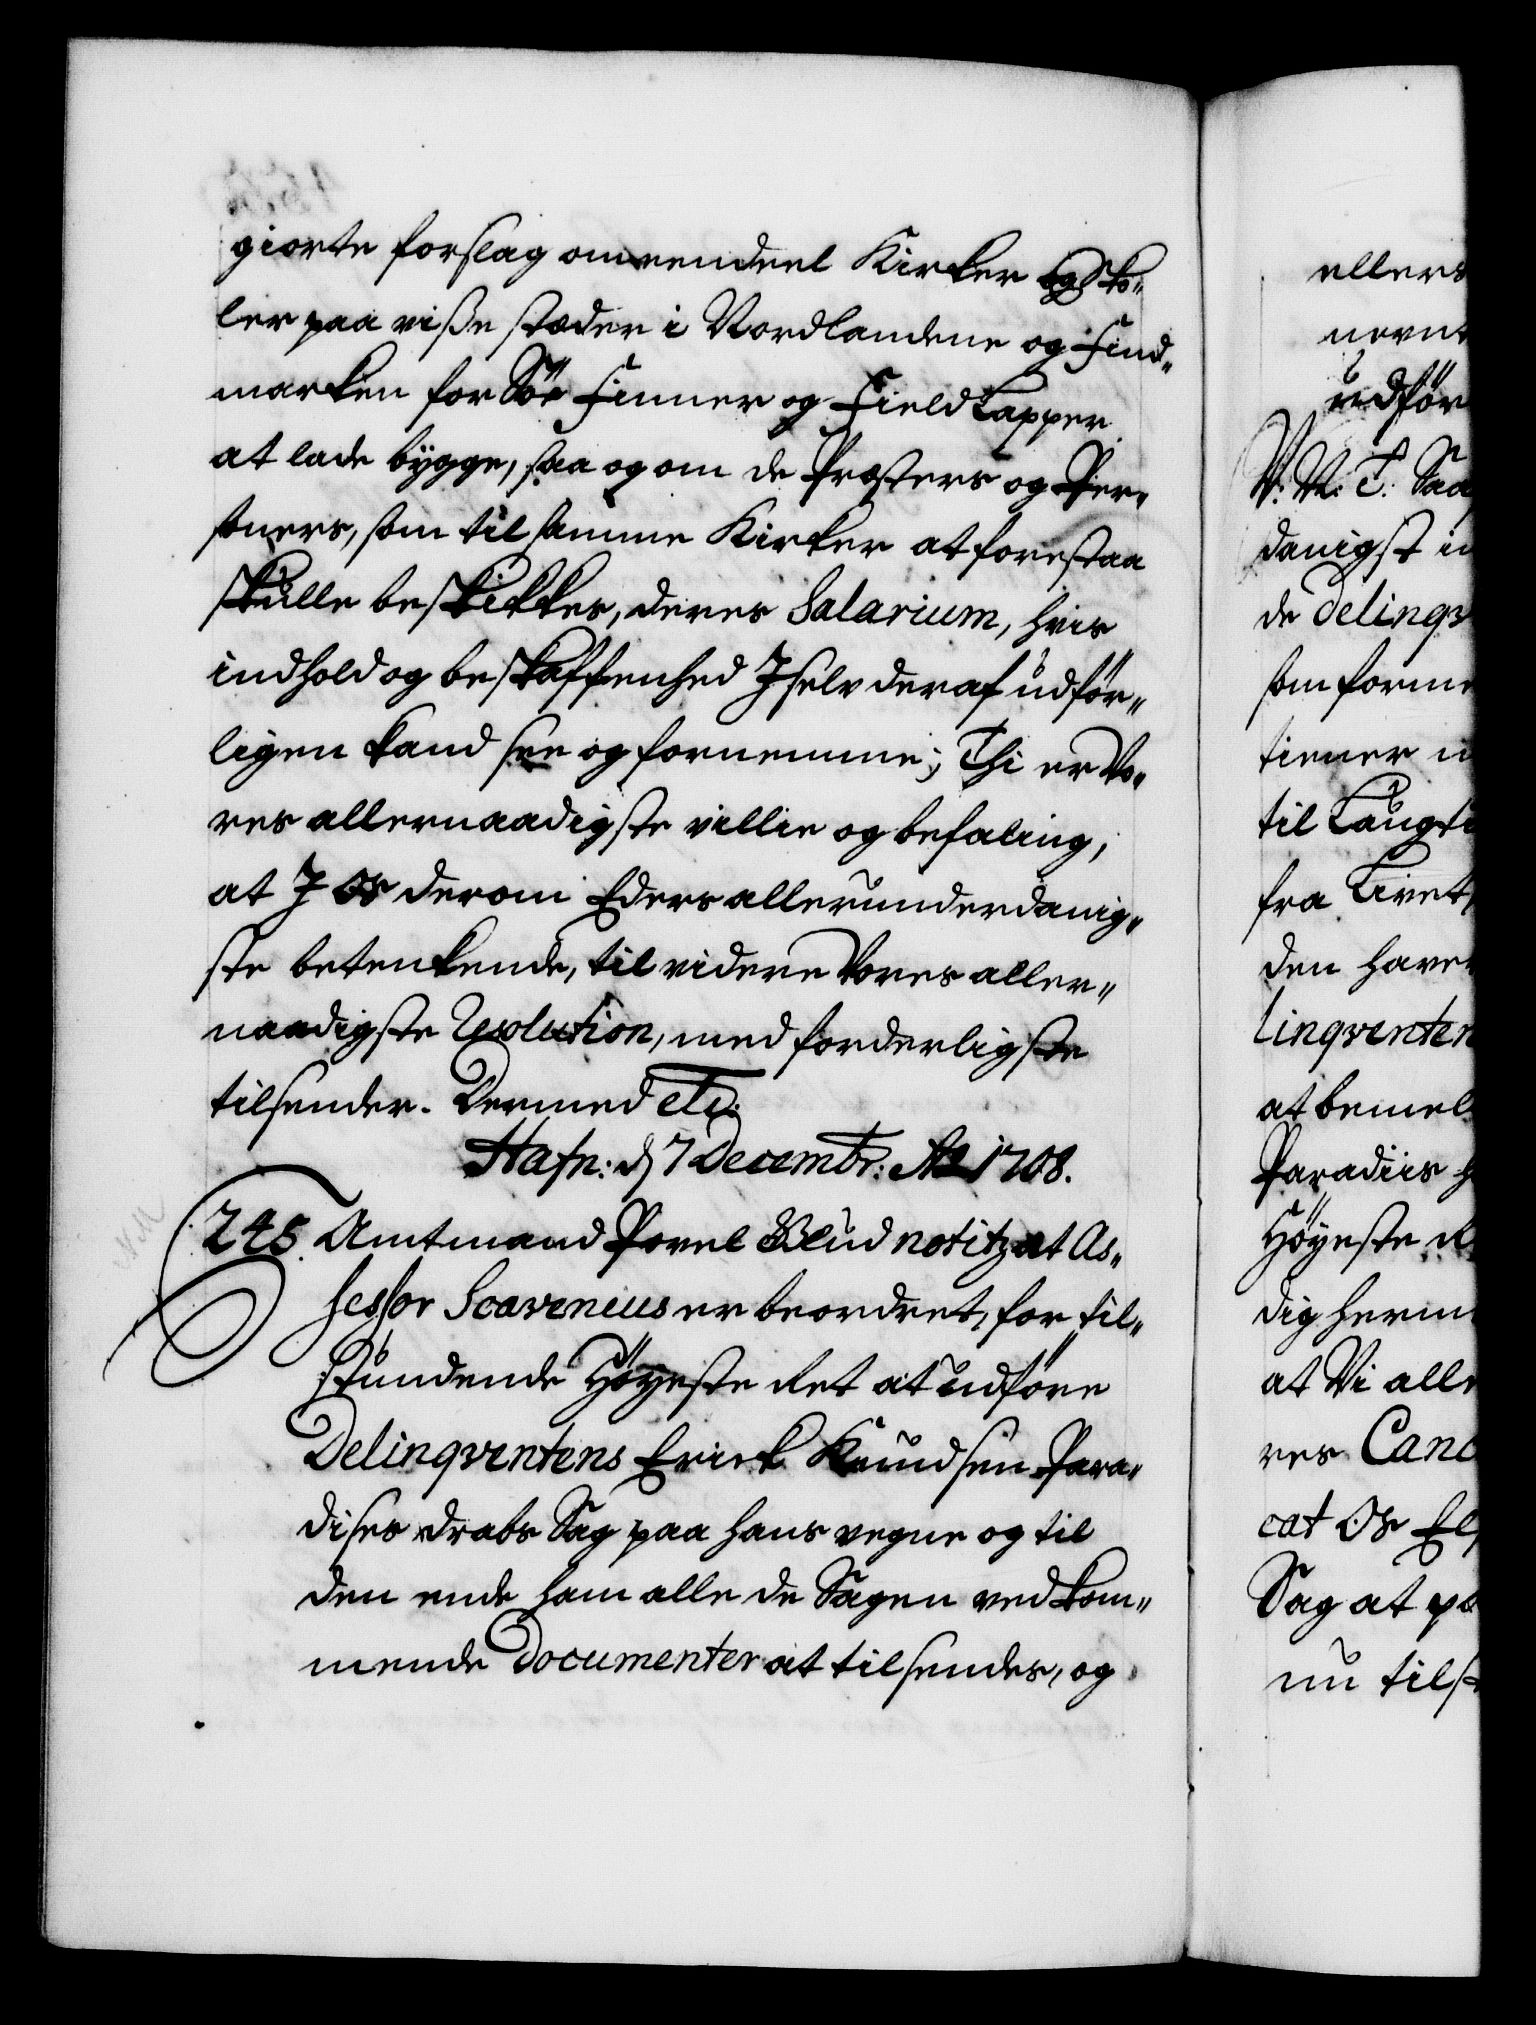 giorte forslag om eendeel Kirker og Sko„
ler paa visse stæder i Nordlandene og Find„
marken for Söe Finner og Field Lapper
at lade bygge, saa og om de Præsters og Per„
soners, som til samme Kirker at forestaa
skulle beskikkes, deres Salarium, hvis
indhold og beskaffenhed J selv deraf udför„
ligen kand see og fornemme; Thi er Vo„
res allernaadigste villie og befaling,
at J Os derom Eders allerunderdanig„
ste betenkende, til videre Vores aller„
naadigste Resolution, med forderligste
tilsender. Dermed etc:
Hafn: d 7 Decembr: Ao 1708.
245. Amtmand Povel Blud notitz at As„
sessor Scavenius er beordret, for til„
stundende Höyeste Ret at udföre
Delinqventens Erick Knudsen Para„
dises drabs Sag paa hans vegne og til
den ende ham alle de Sagen vedkom„
mende Documenter at tilsendes, og
ellers
nevnt
udför
V: M: T: Saa
danigst in
de Delinqv
som forme
tiener u
til Laugti
fra Livet
den haver
linqventen
at bemel
Paradiis h
Höyeste R
dig herm
at Vi alle
res Canc
cat Os El
Sag at p
nu tilst